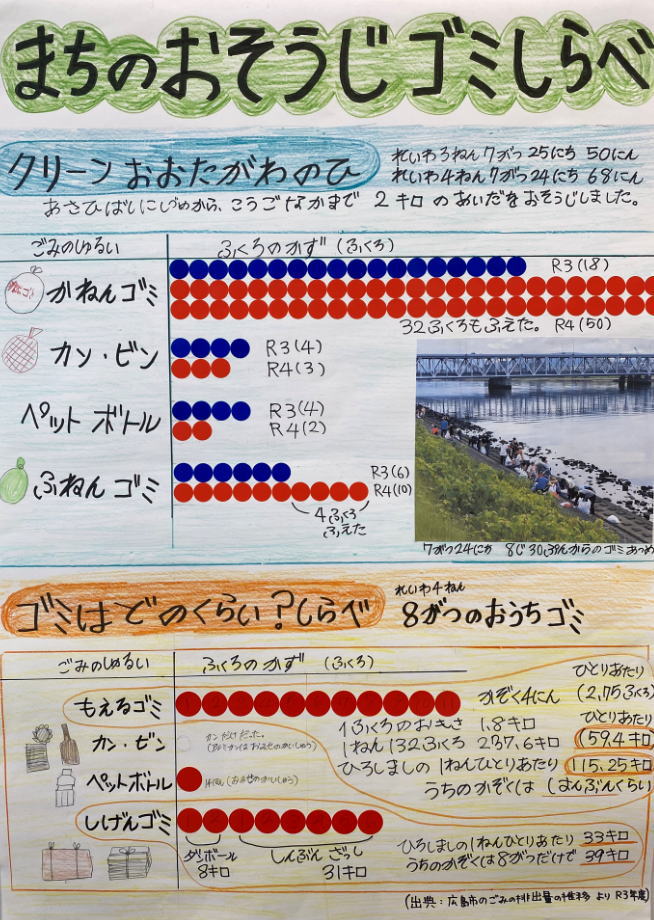 まちのおそうじ ゴミしらべ
クリーン おおたがわのひ
れいわ3ねん7がつ 25にち 50にん
れいわ4ねん7がつ24にち 68にん
あさひばしにしづめから、こうごなかまで 2キロ のあいだをおそうじしました。
ごみのしゅるい ふくろのかず (ふくろ)
かねんゴミ R3(18)
32ふくろもふえた。 R4(50)
カン・ビン R3(4)
R4(3)
ペットボトル R3(4)
R4(2)
ふねんゴミ R3(6)
R4(10)
4ふくろ
ふえた
7がつ24にち 8じ30ぷんからのゴミあつめ
ゴミはどのくらい?しらべ
れいわ4ねん
8がつのおうちゴミ
ごみのしゅるい ふくろのかず (ふくろ)
もえるゴミ かぞく4にん
ひとりあたり
(2,75ふくろ)
カン・ビン
1ふくろのおもさ 1.8キロ
1ねん132ふくろ 237.6キロ
ひとりあたり
(59.4キロ)
ひろしまの1ねんひとりあたり 115.25キロ
うちのかぞくは (はんぶんくらい)
ペットボトル
しげんゴミ
ダンボール
8キロ
しんぶん ざっし
31キロ
ひろしまの1ねんひとりあたり 33キロ
うちのかぞくは8がつだけで 39キロ
(出典:広島市のごみの排出量の推移 より R3年度)